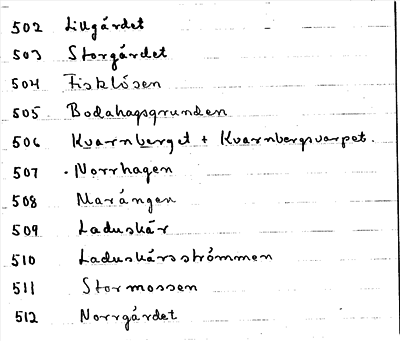 502 Lillgärdet
503 Storgärdet
504 Fisklösen
505 Bodahagsgrunden
506 Kvarnberget + Kvarnbergsvarpet.
507 Norrhagen
508 Marängen
509 Laduskär
510 Laduskärsströmmen
511 Stormossen
512 Norrgärdet